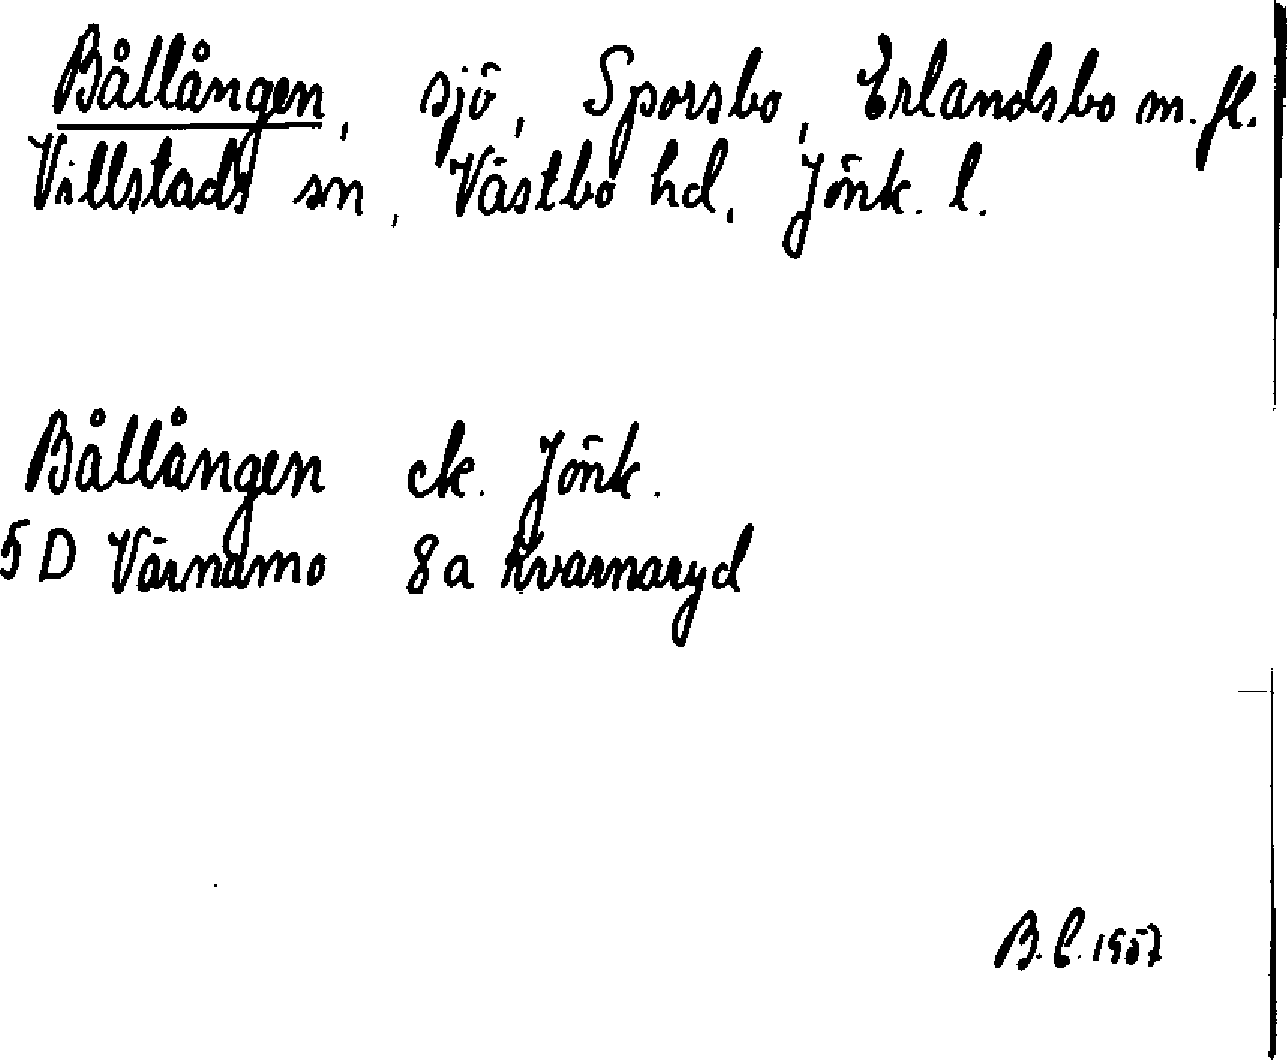 Bållången, sjö, Sporsbo, Erlandsbo m. fl.
Villstads sn, Västbo hd, Jönk. l.
Bållången ek. Jönk.
5 D Värnamo 8a Kvarnaryd
B. C. 1957